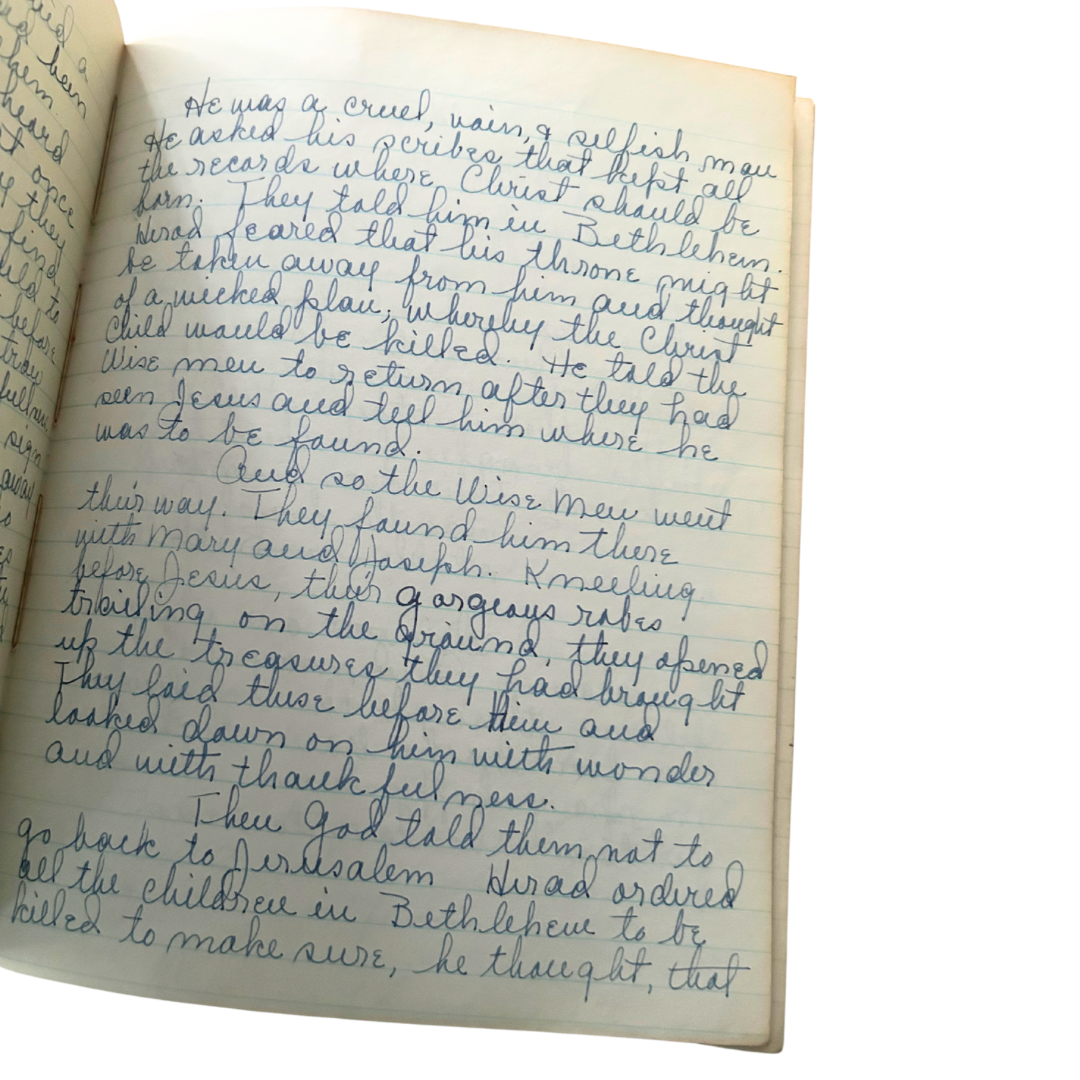 ud a
nd been
hem.
heard
t once
y they
find
eld to
before
tray
sign
away
He was a cruel, vain, & selfish man
He asked his scribes that kept all
the records where Christ should be
born. They told him in Bethlehem.
Herod feared that his throne might
be taken away from him and thought
of a wicked plan, whereby the Christ
Child would be killed. He told the
Wise men to return after they had
seen Jesus and tell him where he
was to be found.
And so the Wise Men went
their way. They found him there
with Mary and Joseph. Kneeling
before Jesus, their gorgeous robes
trailing on the ground, they opened
up the treasures they had brought
They laid these before Him and
looked down on him with wonder
and with thankfulness.
Then God told them not to
go back to Jerusalem Herod ordered
all the children in Bethlehem to be
killed to make sure, he thought, that